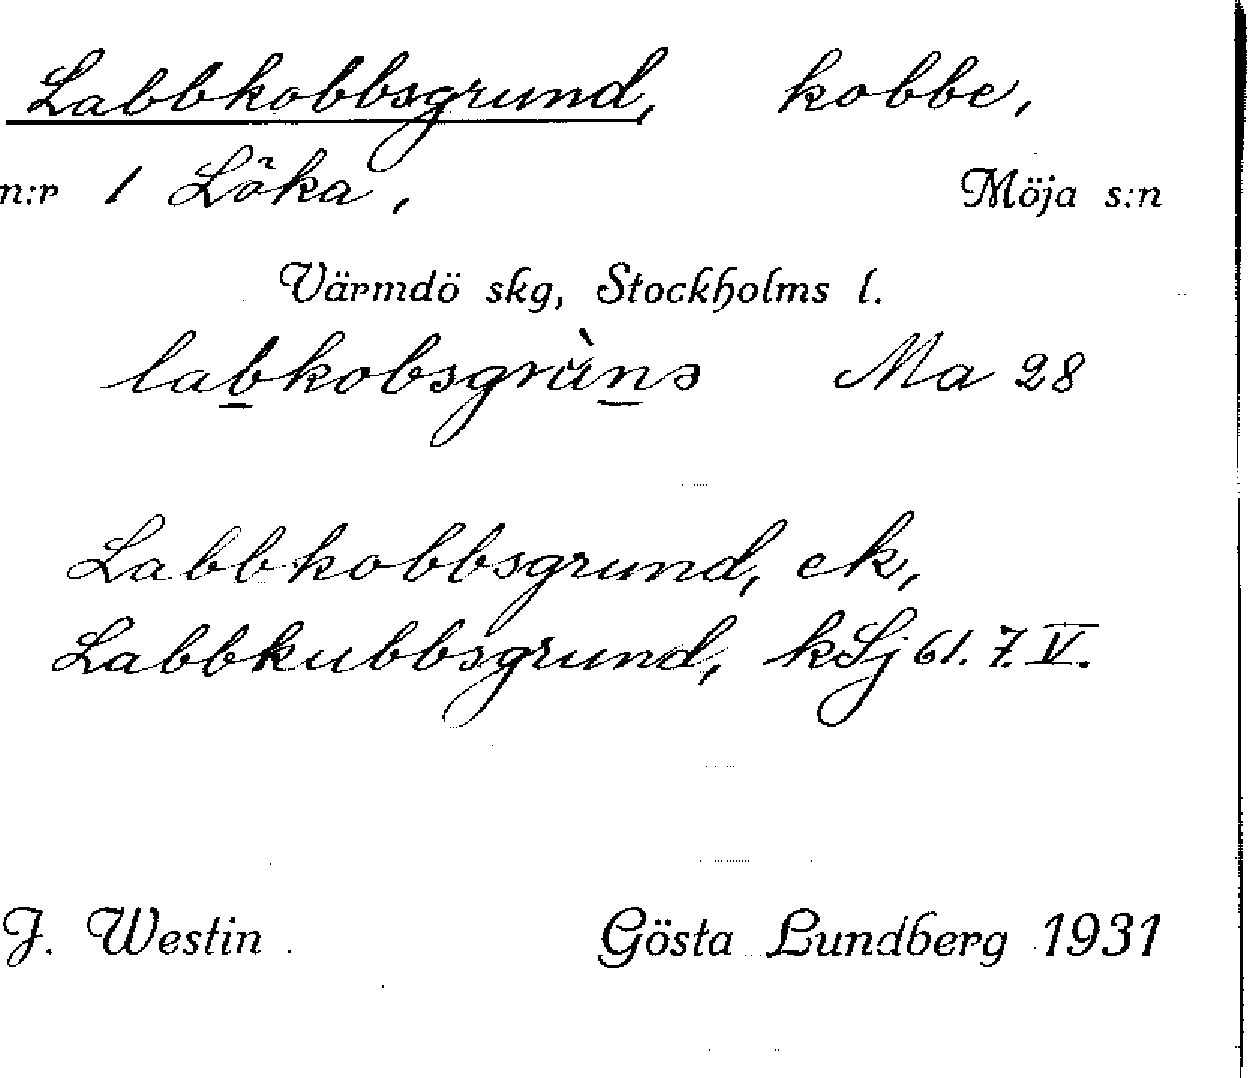 Labbkobbsgrund, kobbe,
n:r 1 Löka, Möja s:n
Värmdö skg, Stockholms l.
labkobsgràns Ma 28
Labbkobbsgrund, ek,
Labbkubbsgrund, kSj 61. 7. V.
J. Westin Gösta Lundberg 1931